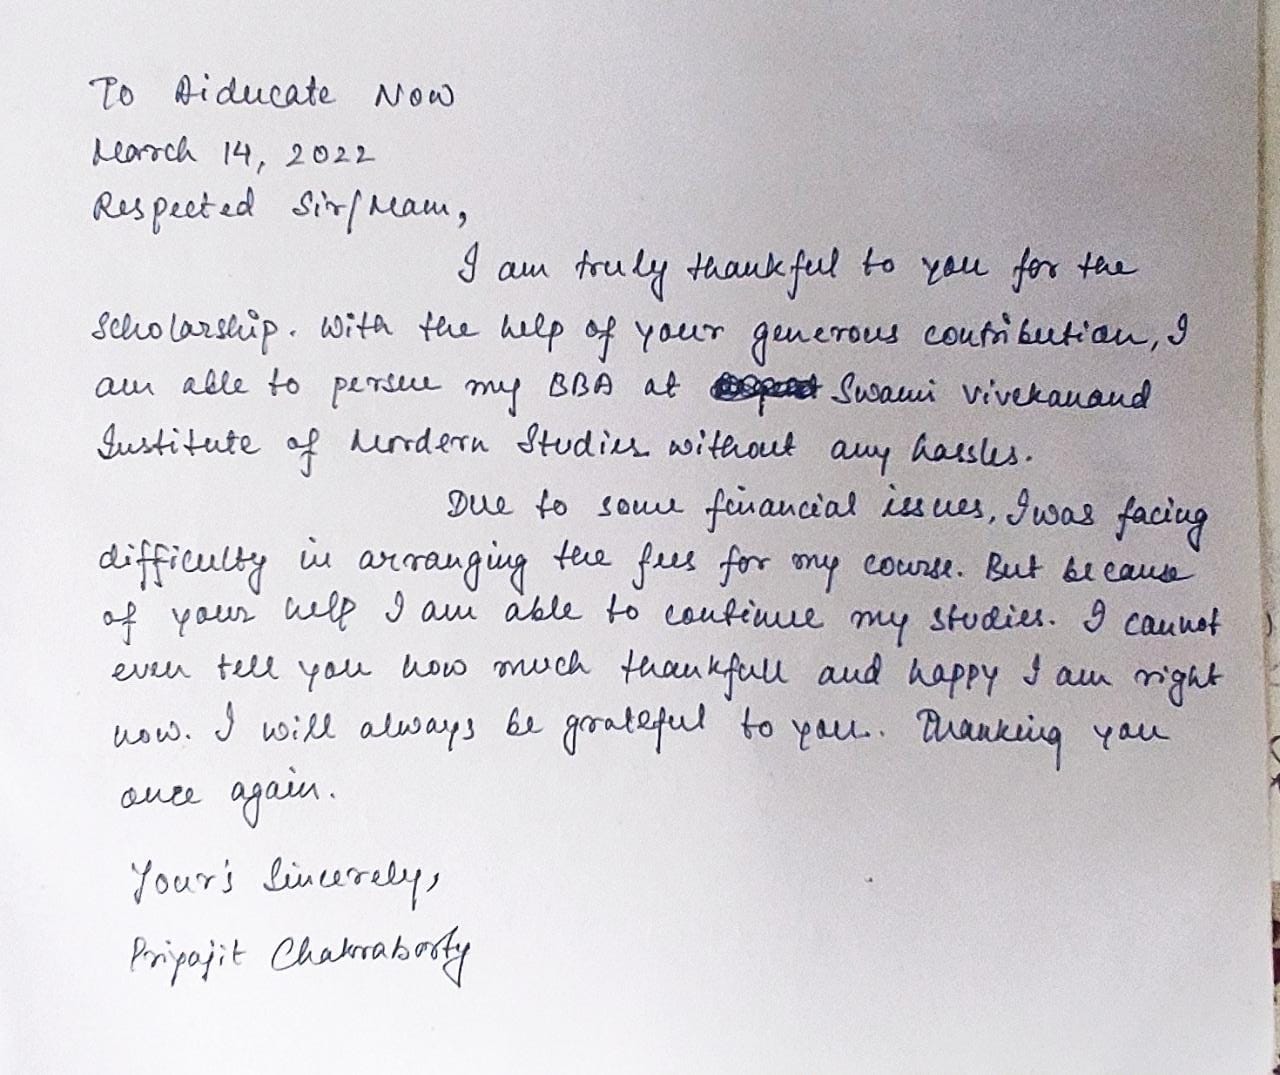 To Aiducate Now
March 14, 2022
Respected Sir/Mam,
I am truly thankful to you for the
Scholarship. With the help of your generous contribution, I
am able to persue my BBA at Swami Vivekanand
Institute of Mordern Studies without any hassles.
Due to some financial issues, I was facing
difficulty in arranging the fees for my course. But because
of your help I am able to continue my studies. I cannot
even tell you how much thankfull and happy I am right
now. I will always be grateful to you. Thanking you
once again.
Your's Sincerely,
Priyajit Chakraborty